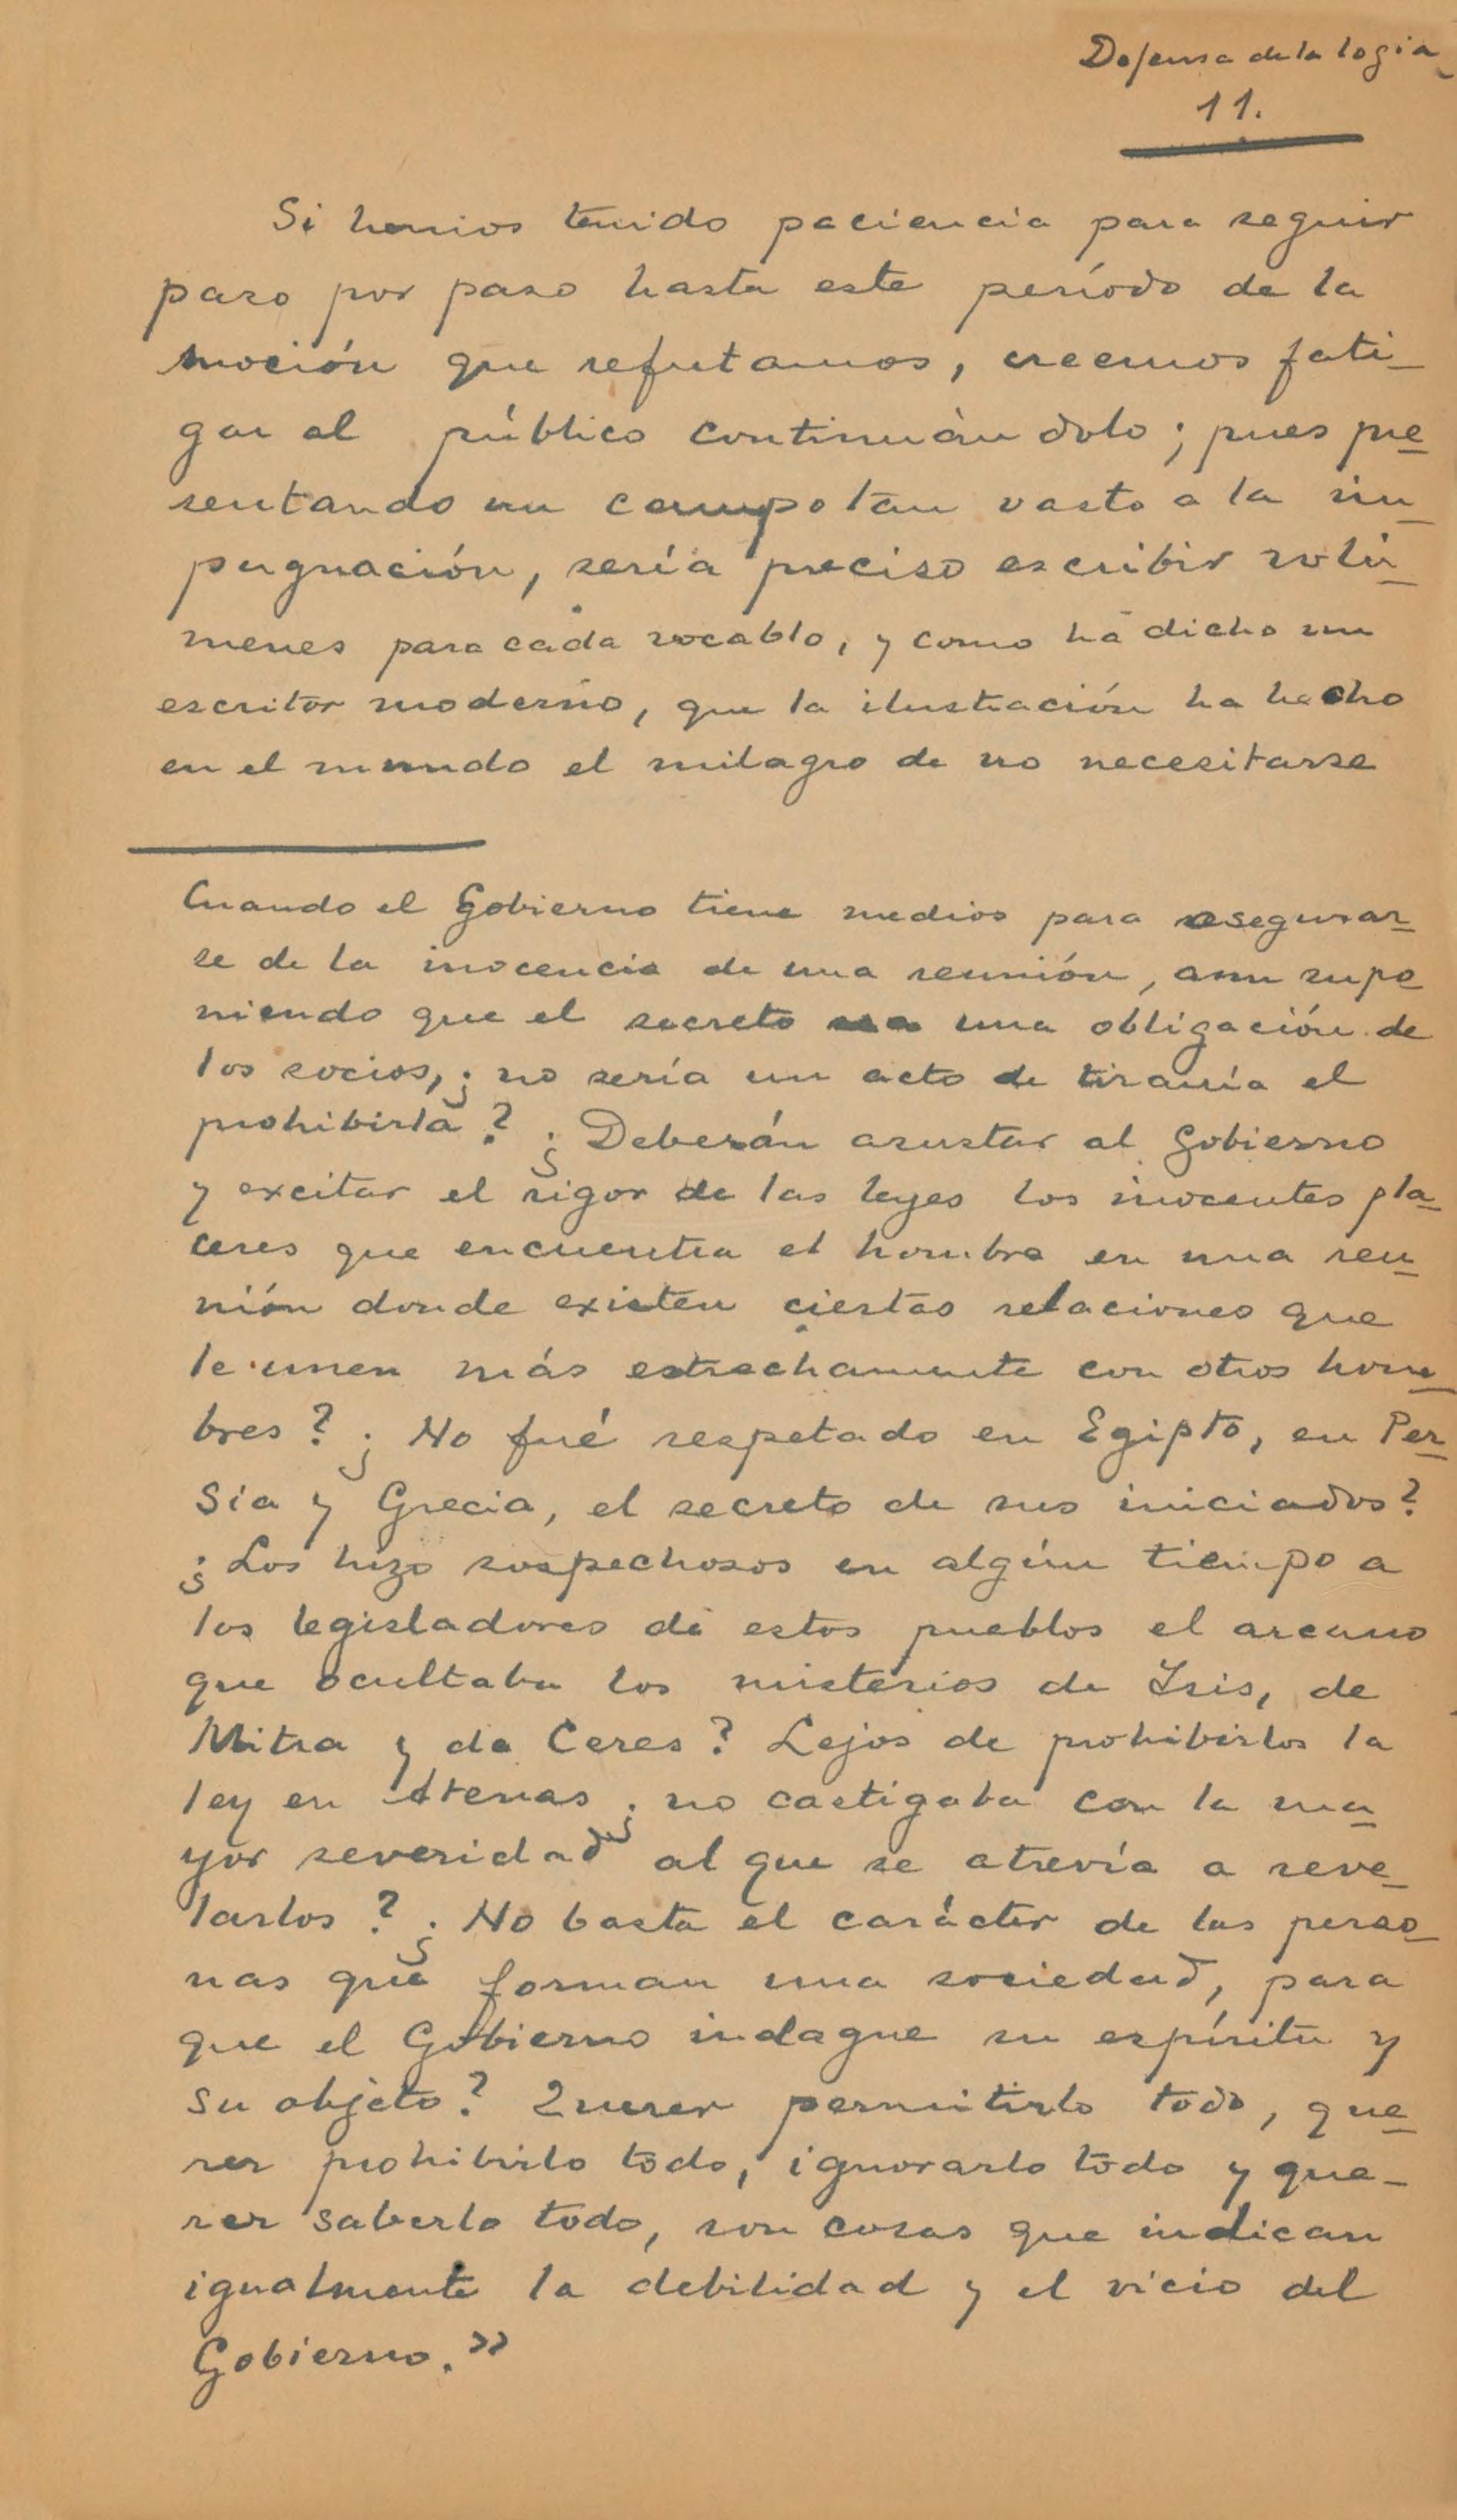 Defensa de la logia
11.
Si hemos tenido paciencia para seguir
paso por paso hasta este período de la
moción que refutamos, creemos fati-
gar al público continuándolo; pues pre-
sentando un campo tan vasto a la im-
pugnación, sería preciso escribir volú-
menes para cada vocablo, y como ha dicho un
escritor moderno, que la ilustración ha hecho
en el mundo el milagro de no necesitarse
Cuando el Gobierno tiene medios para asegurar-
se de la inocencia de una reunión, aun supo
niendo que el secreto sea una obligación de
los socios, ¿no sería un acto de tiranía el
prohibirla? ¿Deberán asustar al Gobierno
y excitar el rigor de las leyes los inocentes pla-
ceres que encuentra el hombre en una reu-
nión donde existen ciertas relaciones que
le unen más estrechamente con otros hom-
bres? ¿No fué respetado en Egipto, en Per-
sia y Grecia, el secreto de sus iniciados?
¿Los hizo sospechosos en algún tiempo a
los legisladores de estos pueblos el arcano
que ocultaba los misterios de Isis, de
Mitra y de Ceres? Lejos de prohibirlos la
ley en Atenas ¿no castigaba con la ma-
yor severidad al que se atrevía a reve-
larlos? ¿No basta el carácter de las perso-
nas que forman una sociedad, para
que el Gobierno indague su espíritu y
su objeto? Querer permitirlo todo, que-
rer prohibirlo todo, ignorarlo todo y que-
rer saberlo todo, son cosas que indican
igualmente la debilidad y el vicio del
Gobierno.»